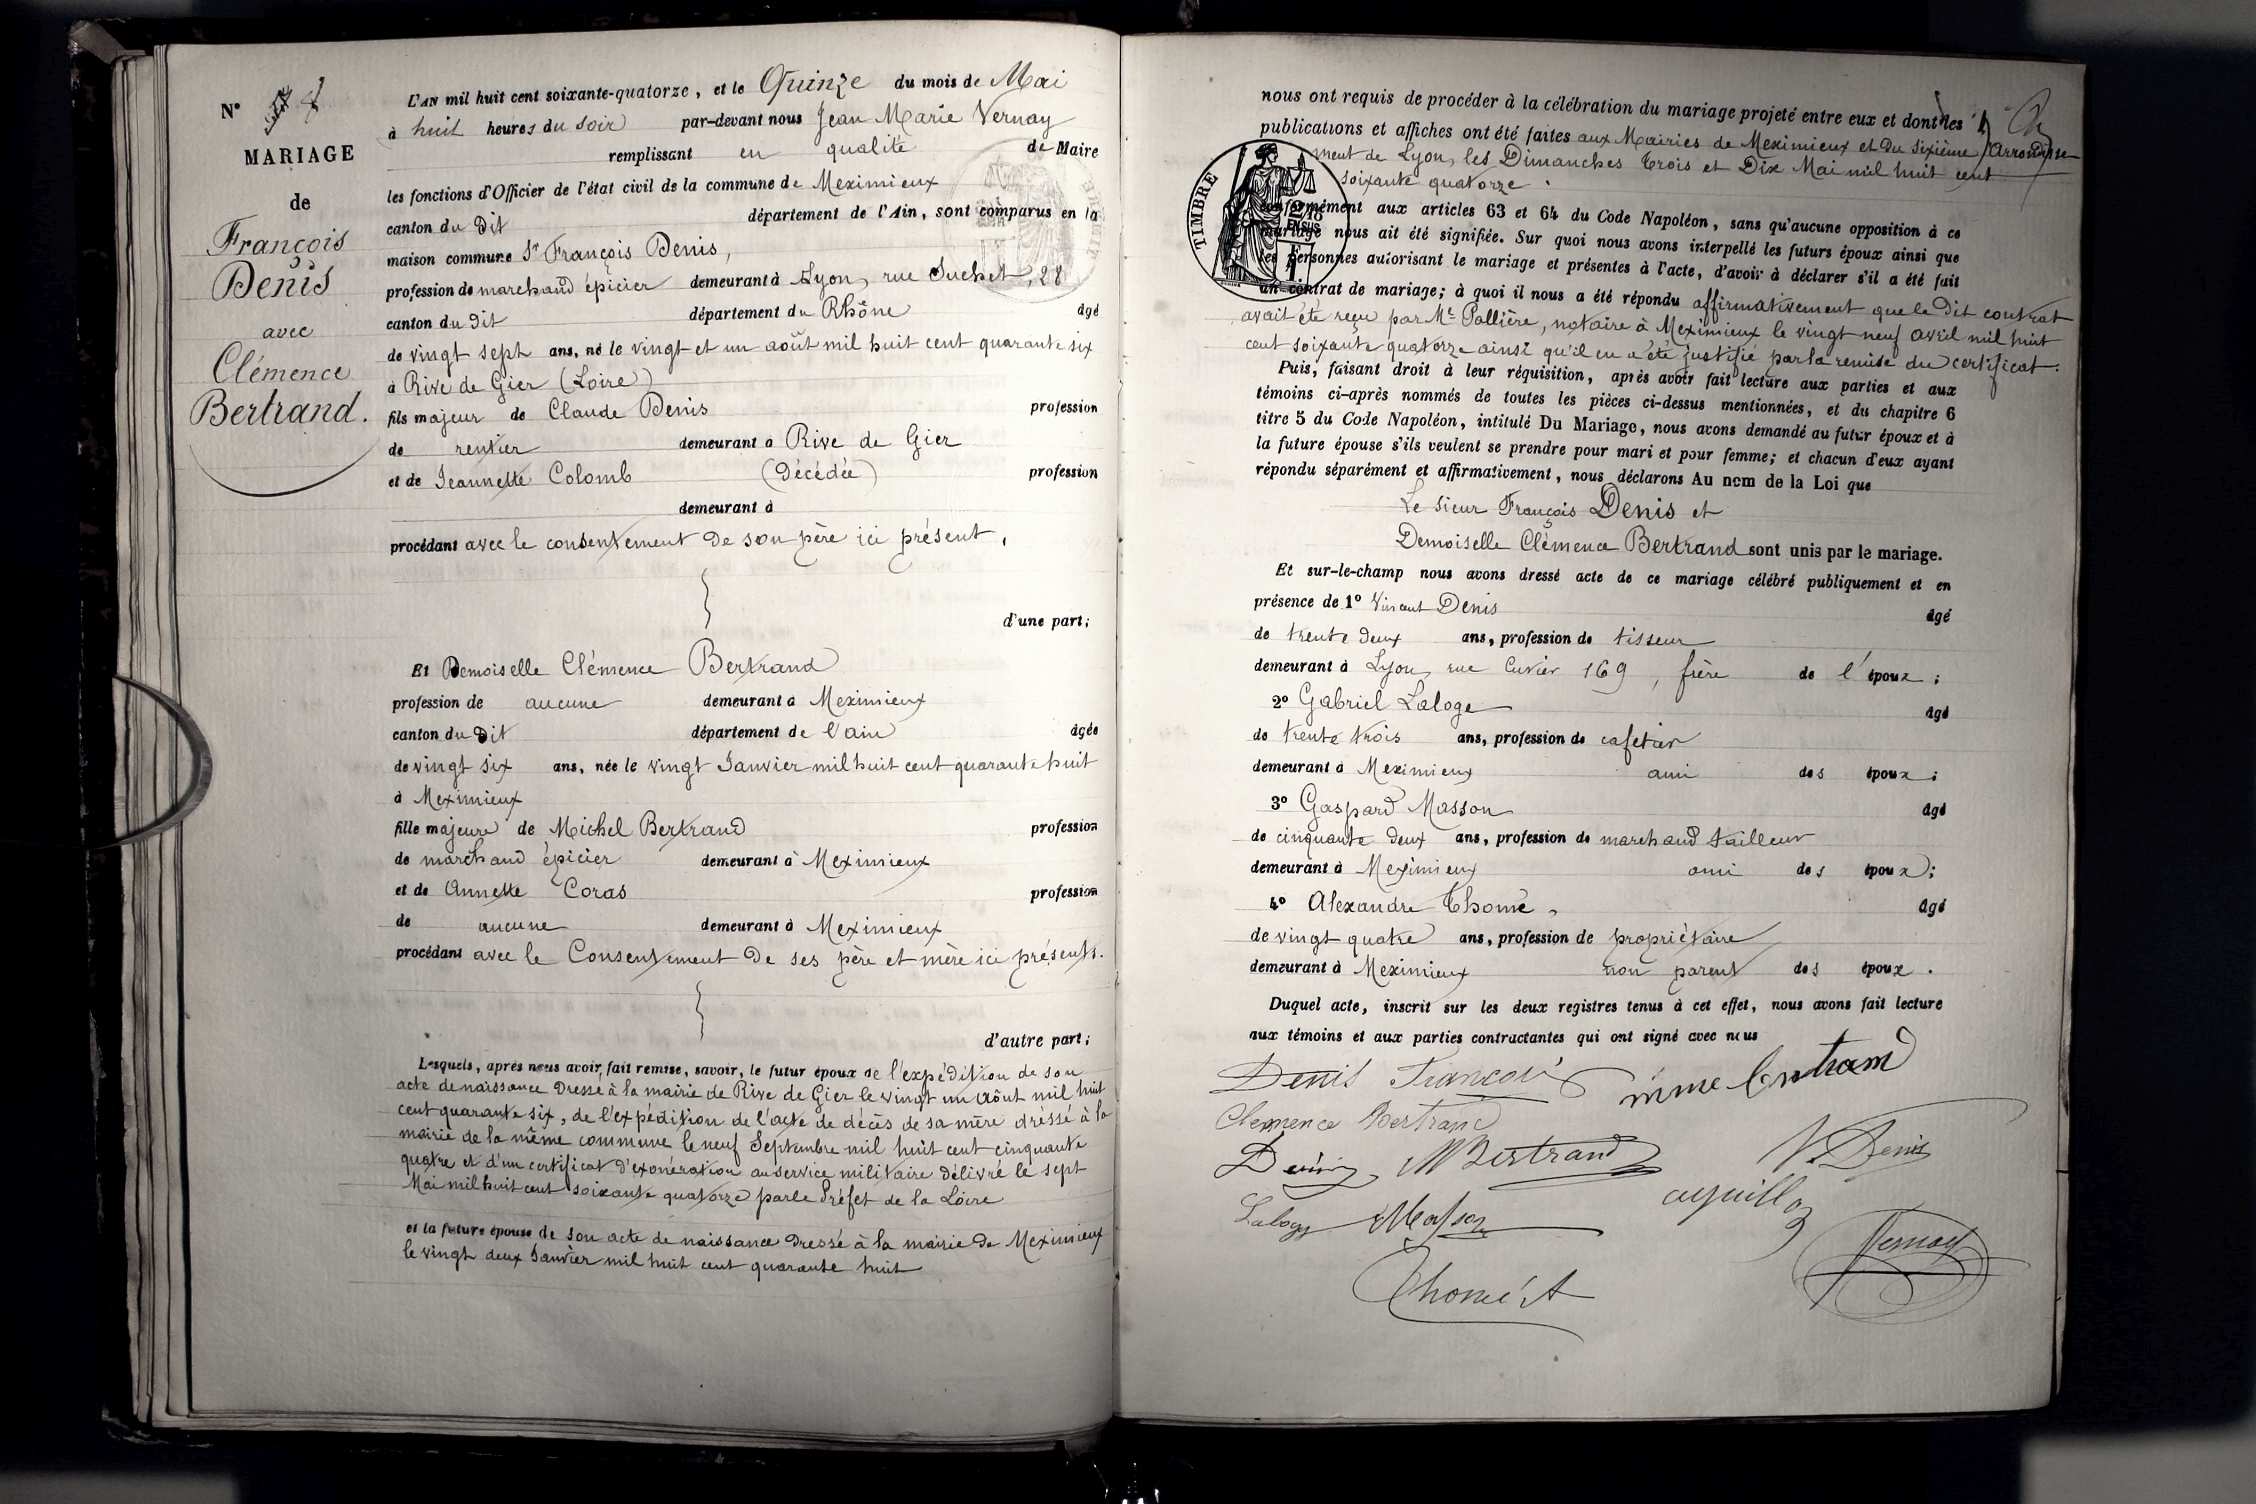 N° 8
MARIAGE
de
François
Denis
avec
Clémence
Bertrand.
L'AN mil huit cent soixante-quatorze, et le Quinze du mois de Mai
à huit heures du soir par-devant nous Jean Marie Vernay
remplissant en qualité de Maire
les fonctions d'Officier de l'état civil de la commune de Meximieux
canton du dit département de l'Ain, sont comparus en la
maison commune Sr François Denis,
profession de marchand épicier demeurant à Lyon, rue Suchet, 28
canton du dit département du Rhône âgé
de vingt sept ans, né le vingt et un août mil huit cent quarante six
à Rive de Gier (Loire)
fils majeur de Claude Denis profession
de rentier demeurant à Rive de Gier
et de Jeannette Colomb (Décédée) profession
demeurant à
procédant avec le consentement de son père ici présent,
d'une part;
Et Demoiselle Clémence Bertrand
profession de aucune demeurant à Meximieux
canton du dit département de l'ain âgée
de vingt six ans, née le vingt Janvier mil huit cent quarante huit
à Meximieux
fille majeure de Michel Bertrand profession
de marchand épicier demeurant à Meximieux
et de Annette Coras profession
de aucune demeurant à Meximieux
procédant avec le Consentement de ses père et mère ici présents.
d'autre part;
Lesquels, après nous avoir fait remise, savoir, le futur époux de l'expédition de son
acte de naissance dressé à la mairie de Rive de Gier le vingt un août mil huit
cent quarante six, de l'expédition de l'acte de décès de sa mère dréssé à la
mairie de la même commune le neuf Septembre mil huit cent cinquante
quatre et d'un certificat d'exonération au service militaire délivré le sept
Mai mil huit cent soixante quatorze par le Préfet de la Loire
et la future épouse de son acte de naissance dressé à la mairie de Meximieux
le vingt deux Janvier mil huit cent quarante huit
nous ont requis de procéder à la célébration du mariage projeté entre eux et dont les
publications et affiches ont été faites aux Mairies de Meximieux et du sixième Arrondisse-
ment de Lyon, les Dimanches trois et Dix Mai mil huit cent
soixante quatorze.
TIMBRE
conformément aux articles 63 et 64 du Code Napoléon, sans qu'aucune opposition à ce
mariage nous ait été signifiée. Sur quoi nous avons interpellé les futurs époux ainsi que
les personnes autorisant le mariage et présentes à l'acte, d'avoir à déclarer s'il a été fait
un contrat de mariage; à quoi il nous a été répondu affirmativement que le dit contrat
avait été reçu par Me Pallière, notaire à Meximieux le vingt neuf avril mil huit
cent soixante quatorze ainsi qu'il en a été justifié par la remise du certificat.
Puis, faisant droit à leur réquisition, après avoir fait lecture aux parties et aux
témoins ci-après nommés de toutes les pièces ci-dessus mentionnées, et du chapitre 6
titre 5 du Code Napoléon, intitulé Du Mariage, nous avons demandé au futur époux et à
la future épouse s'ils veulent se prendre pour mari et pour femme; et chacun d'eux ayant
répondu séparément et affirmativement, nous déclarons Au nom de la Loi que
Le Sieur François Denis et
Demoiselle Clémence Bertrand sont unis par le mariage.
Et sur-le-champ nous avons dressé acte de ce mariage célébré publiquement et en
présence de 1° Vincent Denis âgé
de trente deux ans, profession de tisseur
demeurant à Lyon, rue Cuvier 169, frère de l'époux;
2° Gabriel Laloge âgé
de trente trois ans, profession de cafetier
demeurant à Meximieux ami des époux;
3° Gaspard Masson âgé
de cinquante deux ans, profession de marchand tailleur
demeurant à Meximieux ami des époux;
4° Alexandre Thomé, âgé
de vingt quatre ans, profession de propriétaire
demeurant à Meximieux non parent des époux.
Duquel acte, inscrit sur les deux registres tenus à cet effet, nous avons fait lecture
aux témoins et aux parties contractantes qui ont signé avec nous
Denis François
Clemence Bertrand
Denis MBertrand V. Denis
Laloge Masson
Thomé A Vernay